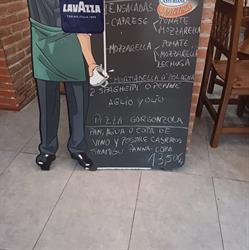 LAVAZZA
TORINO, ITALIA, 1895
ENSALADAS
CAPRESE
TOMATE
MOZZARELLA
MOZZARELLA
TOMATE
LECHUGA
MORTADELLA BOLOGNA
2 SPAGHETTI O PENNE
AGLIO Y OLIO
PIZZA GORGONZOLA
PAN, AGUA O COPA DE
VINO Y POSTRE CASEROS
TIRAMISU PANNA COTA
13,50€